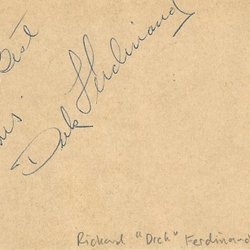 Best
Dick Ferdinand
Richard "Dick" Ferdinand